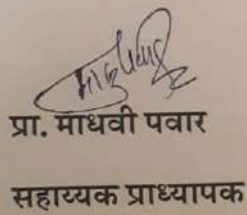 प्रा. माधवी पवार
सहाय्यक प्राध्यापक